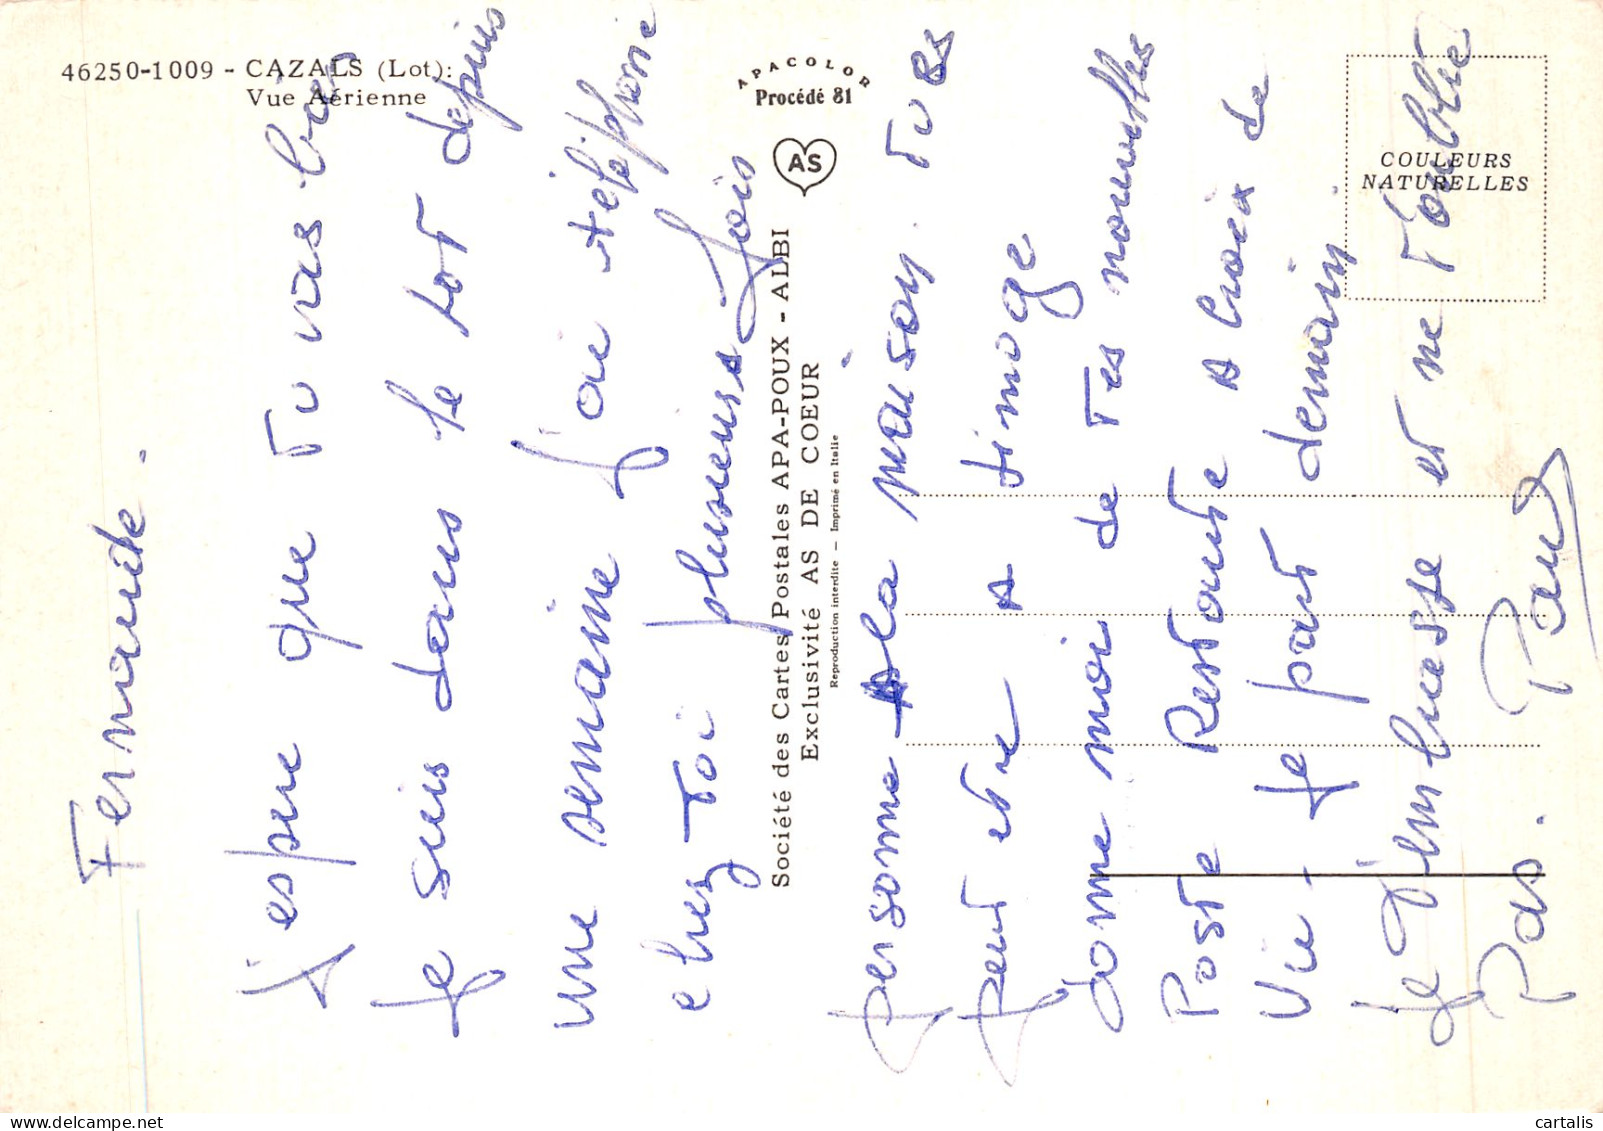 46250-1009 - CAZALS (Lot):
Vue Aérienne
APACOLOR
Procédé 81
AS
Société des Cartes Postales APA-POUX - ALBI
Exclusivité AS DE COEUR
Reproduction interdite - Imprimé en Italie
COULEURS
NATURELLES
Fernande.
J'espere que Tu vas bien
Je suis dans le Lot depuis
une semaine j'ai téléphone
chez Toi plusieurs fois
personne A la maison. Tu es
peut etre A Limoge
donne moi de Tes nouvelles
Poste Restante A Croix de
Vie - Je part demain.
Je T'embrasse et ne T'oublie
Pas. Paul
cartalis